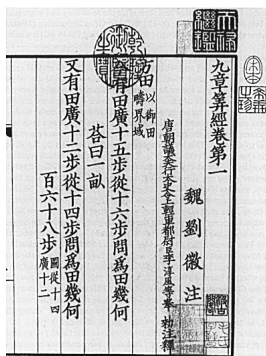 九章筭經卷第一
魏劉徽注
唐朝議大夫行太史令上輕車都尉臣李淳風等奉 敕注釋
方田 以御田
疇界域
今有田廣十五步從十六步問爲田幾何
荅曰一畝
又有田廣十二步從十四步問爲田幾何
百六十八步 圖從十四
廣十二
天祿繼鑑
宋本